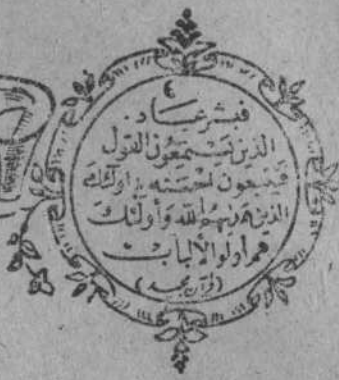 فبشر عباد
الذين يستمعون القول
فيتبعون احسنه ؛ اولئك
الذين هديهم الله وأولئك
هم أولوالألباب
(قرآن مجيد)